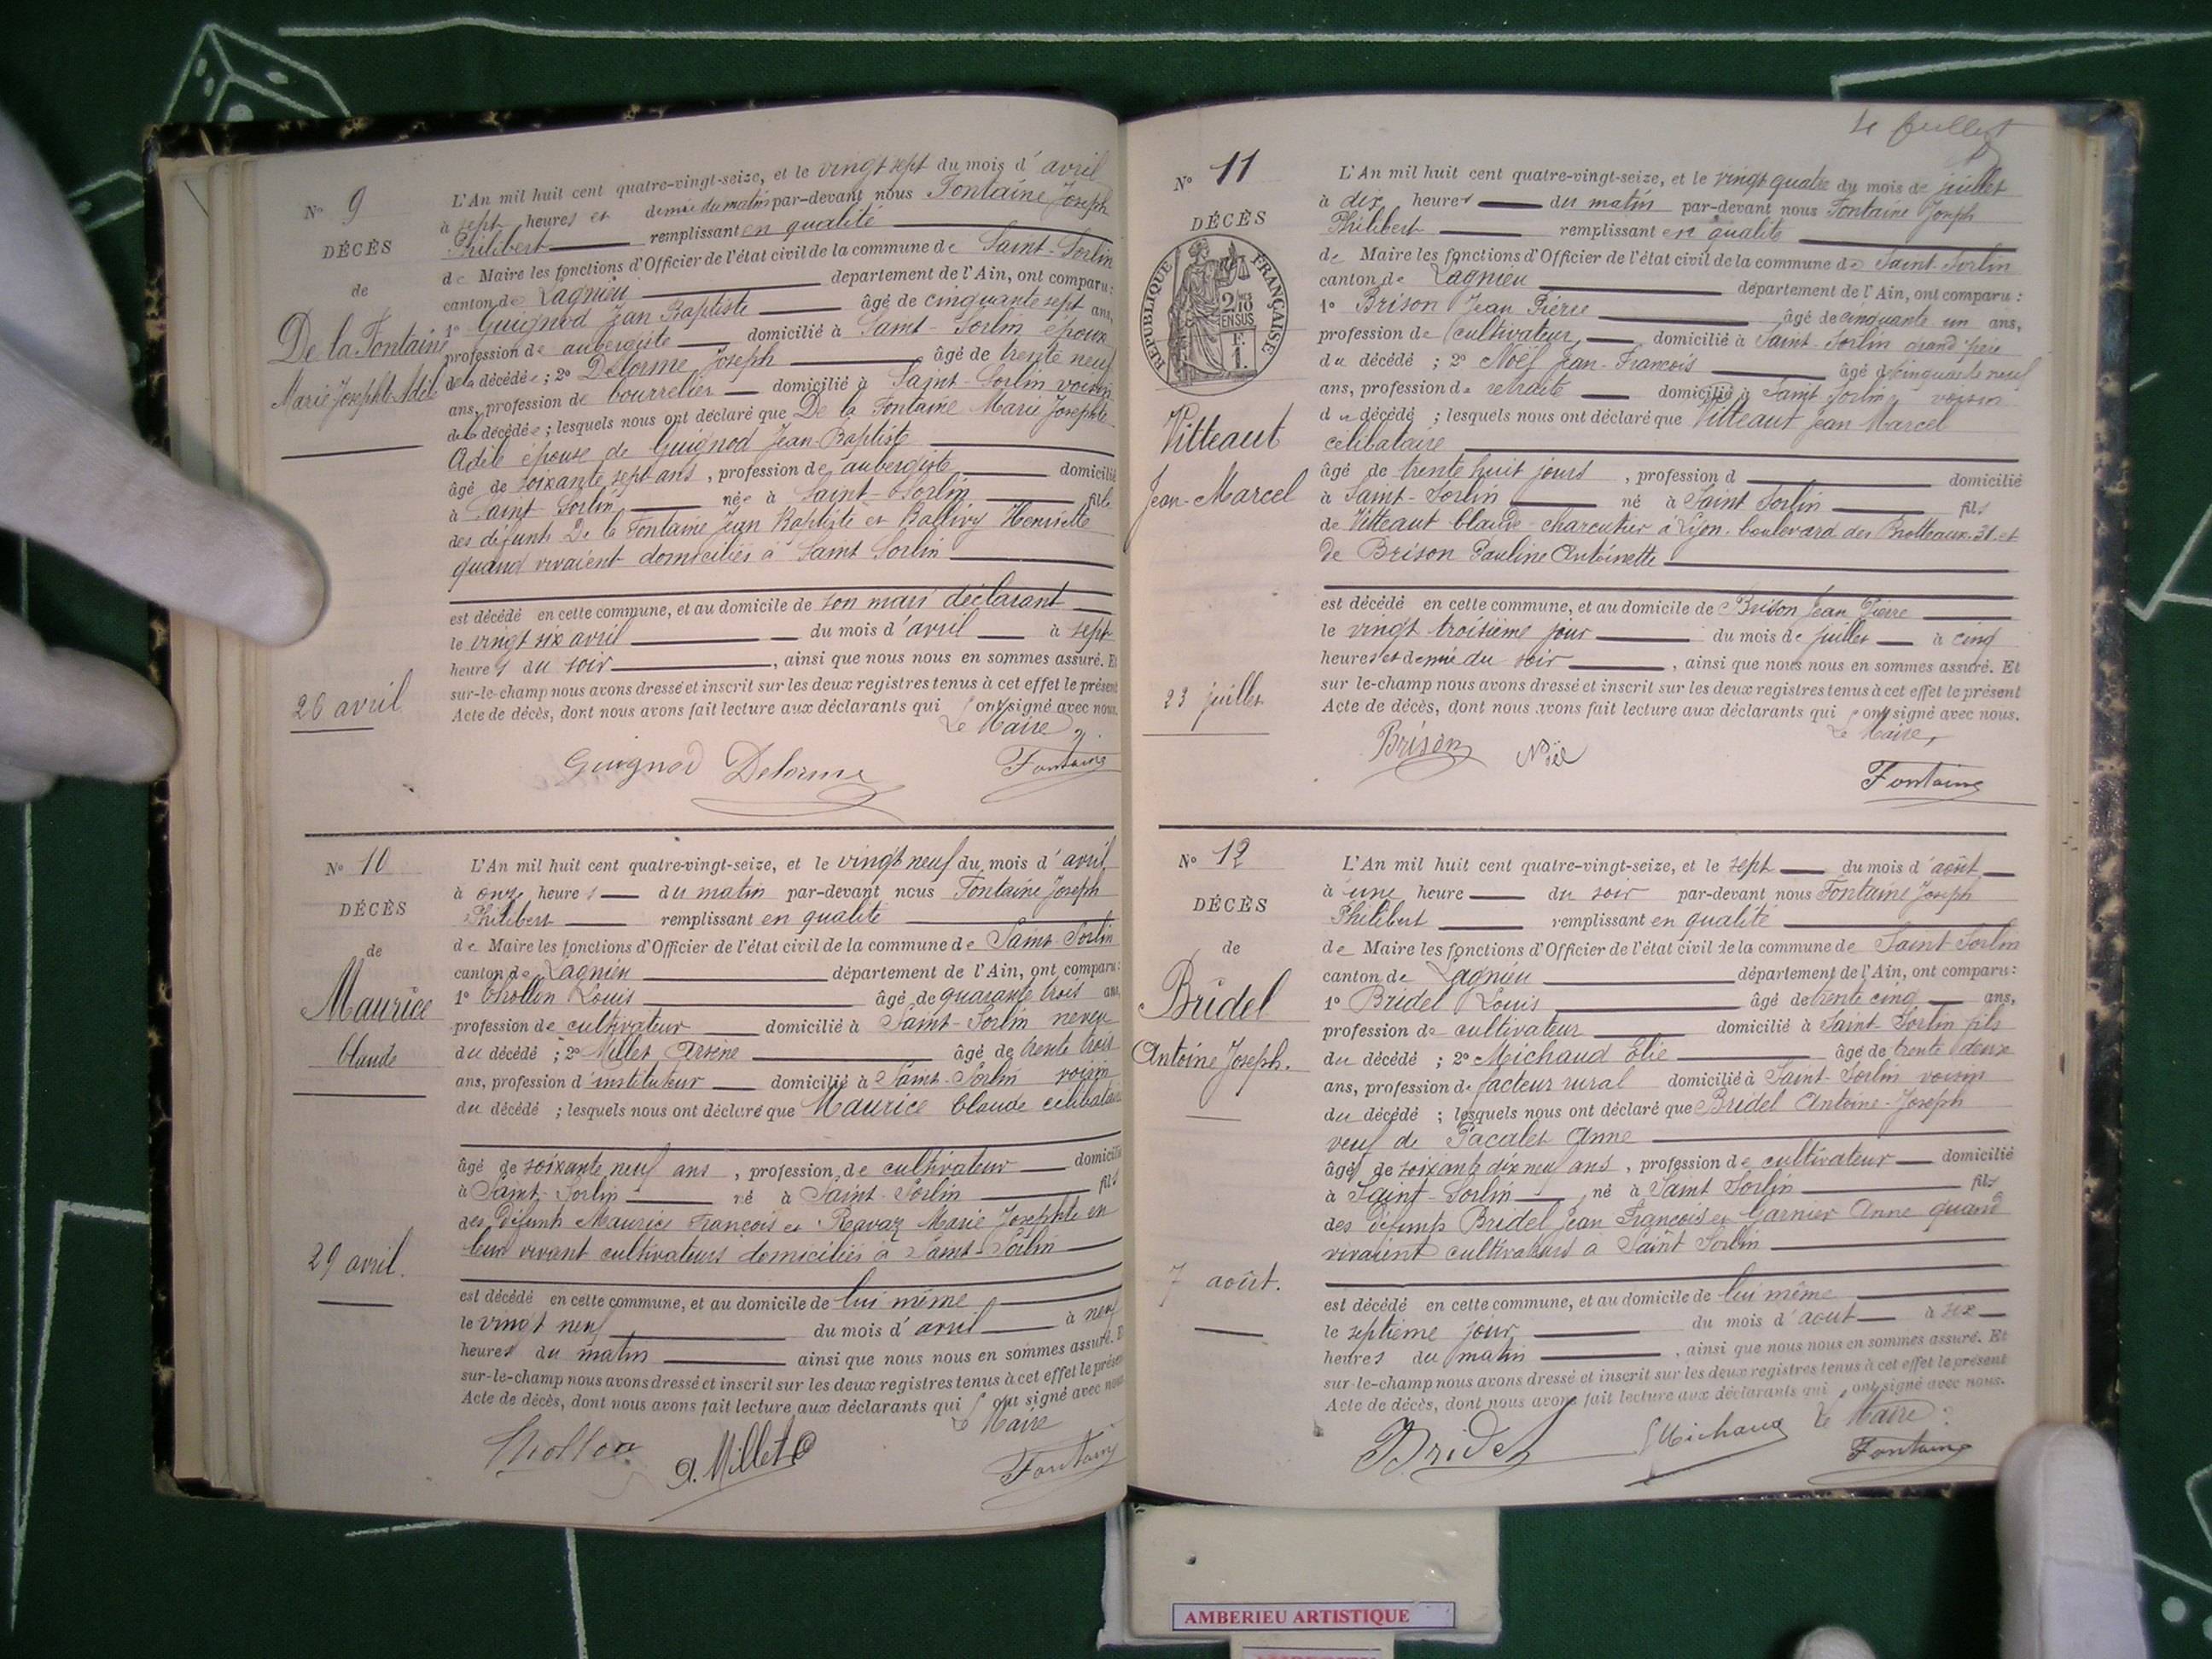 N° 9
DÉCÈS
de
De la Fontaine
Marie Josephte Adèle
26 avril
L'An mil huit cent quatre-vingt-seize, et le vingt sept du mois d'avril
à sept heures et demie du matin par-devant nous Fontaine Joseph
Philibert remplissant en qualité
de Maire les fonctions d'Officier de l'état civil de la commune de Saint-Sorlin
canton de Lagnieu département de l'Ain, ont comparu :
1° Guignod Jean Baptiste âgé de cinquante sept ans,
profession de aubergiste domicilié à Saint-Sorlin époux
de la décédée ; 2° Delorme Joseph âgé de trente neuf
ans, profession de bourrelier domicilié à Saint-Sorlin voisin
de la décédée ; lesquels nous ont déclaré que De la Fontaine Marie Josephte
Adèle épouse de Guignod Jean-Baptiste
âgé de soixante sept ans, profession de aubergiste domicilié
à Saint-Sorlin née à Saint-Sorlin fille
des défunts De la Fontaine Jean Baptiste et Ballivy Henriette
quand vivaient domiciliés à Saint Sorlin
est décédé en cette commune, et au domicile de son mari déclarant
le vingt six avril du mois d'avril à sept
heures du soir, ainsi que nous nous en sommes assuré. Et
sur-le-champ nous avons dressé et inscrit sur les deux registres tenus à cet effet le présent
Acte de décès, dont nous avons fait lecture aux déclarants qui ont signé avec nous.
Le Maire
Guignod Delorme Fontaine
N° 10
DÉCÈS
de
Maurice
Claude
29 avril.
L'An mil huit cent quatre-vingt-seize, et le vingt neuf du mois d'avril
à onze heures du matin par-devant nous Fontaine Joseph
Philibert remplissant en qualité
de Maire les fonctions d'Officier de l'état civil de la commune de Saint-Sorlin
canton de Lagnieu département de l'Ain, ont comparu :
1° Chollon Louis âgé de quarante trois ans,
profession de cultivateur domicilié à Saint-Sorlin neveu
du décédé ; 2° Millet Arsène âgé de trente trois
ans, profession d'instituteur domicilié à Saint-Sorlin voisin
du décédé ; lesquels nous ont déclaré que Maurice Claude célibataire
âgé de soixante neuf ans, profession de cultivateur domicilié
à Saint-Sorlin né à Saint-Sorlin fils
des défunts Maurice François et Ravaz Marie Josephte en
leur vivant cultivateurs domiciliés à Saint-Sorlin
est décédé en cette commune, et au domicile de lui même
le vingt neuf du mois d'avril à neuf
heures du matin ainsi que nous nous en sommes assuré. Et
sur-le-champ nous avons dressé et inscrit sur les deux registres tenus à cet effet le présent
Acte de décès, dont nous avons fait lecture aux déclarants qui ont signé avec nous.
Le Maire
Chollon A. Millet Fontaine
N° 11
DÉCÈS
RÉPUBLIQUE FRANÇAISE
2/10 EN SUS
Vitteaut
Jean-Marcel
23 juillet
L'An mil huit cent quatre-vingt-seize, et le vingt quatre du mois de juillet
à dix heures du matin par-devant nous Fontaine Joseph
Philibert remplissant en qualité
de Maire les fonctions d'Officier de l'état civil de la commune de Saint-Sorlin
canton de Lagnieu département de l'Ain, ont comparu :
1° Brison Jean Pierre âgé de cinquante un ans,
profession de cultivateur domicilié à Saint-Sorlin grand père
du décédé ; 2° Noël Jean-François âgé de cinquante neuf
ans, profession de retraité domicilié à Saint Sorlin voisin
du décédé ; lesquels nous ont déclaré que Vitteaut Jean Marcel
célibataire
âgé de trente huit jours, profession d domicilié
à Saint-Sorlin né à Saint Sorlin fils
de Vitteaut Claude charcutier à Lyon boulevard des Brotteaux 31 et
de Brison Pauline Antoinette
est décédé en cette commune, et au domicile de Brison Jean Pierre
le vingt troisième jour du mois de juillet à cinq
heures et demie du soir, ainsi que nous nous en sommes assuré. Et
sur-le-champ nous avons dressé et inscrit sur les deux registres tenus à cet effet le présent
Acte de décès, dont nous avons fait lecture aux déclarants qui ont signé avec nous.
Le Maire,
Brison Noël Fontaine
N° 12
DÉCÈS
de
Bridel
Antoine Joseph.
7 août.
L'An mil huit cent quatre-vingt-seize, et le sept du mois d'août
à une heure du soir par-devant nous Fontaine Joseph
Philibert remplissant en qualité
de Maire les fonctions d'Officier de l'état civil de la commune de Saint-Sorlin
canton de Lagnieu département de l'Ain, ont comparu :
1° Bridel Louis âgé de trente cinq ans,
profession de cultivateur domicilié à Saint-Sorlin fils
du décédé ; 2° Michaud Elie âgé de trente deux
ans, profession de facteur rural domicilié à Saint-Sorlin voisin
du décédé ; lesquels nous ont déclaré que Bridel Antoine-Joseph
veuf de Pacalet Anne
âgé de soixante dix neuf ans, profession de cultivateur domicilié
à Saint-Sorlin né à Saint Sorlin fils
des défunts Bridel Jean François et Garnier Anne quand
vivaient cultivateurs à Saint Sorlin
est décédé en cette commune, et au domicile de lui même
le septième jour du mois d'août à six
heures du matin, ainsi que nous nous en sommes assuré. Et
sur-le-champ nous avons dressé et inscrit sur les deux registres tenus à cet effet le présent
Acte de décès, dont nous avons fait lecture aux déclarants qui ont signé avec nous.
Le Maire
Bridel Michaud Fontaine
AMBERIEU ARTISTIQUE